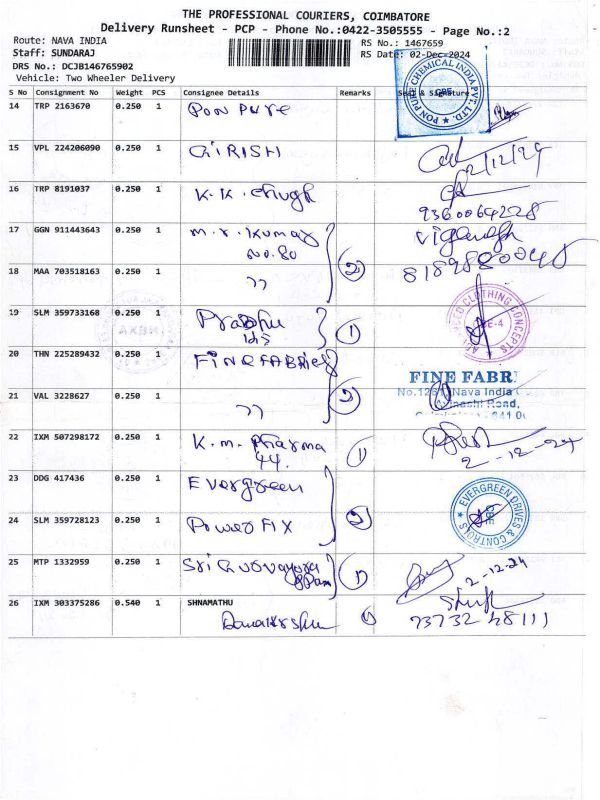 THE PROFESSIONAL COURIERS, COIMBATORE
Delivery Runsheet - PCP - Phone No.:0422-3505555 - Page No.:2
Route: NAVA INDIA RS No.: 1467659
Staff: SUNDARAJ RS Date: 02-Dec-2024
DRS No.: DCJB146765902
Vehicle: Two Wheeler Delivery
S No Consignment No Weight PCS Consignee Details Remarks Seal & Signature
PON PURE CHEMICAL INDIA PVT. LTD.
14 TRP 2163670 0.250 1 PON PURE
15 VPL 224206090 0.250 1 GIRISH 2/12/24
16 TRP 8191037 0.250 1 K.K. chugh
9360064228
17 GGN 911443643 0.250 1 M.R. Kumar
No. 80
18 MAA 703518163 0.250 1 " 2 8189800048
19 SLM 359733168 0.250 1 Prabhu 1
CLOTHING CONCEPTS
20 THN 225289432 0.250 1 FINE FABRICS
FINE FABR
No.126 Nava India
21 VAL 3228627 0.250 1 " 2
22 IXM 507298172 0.250 1 K.M. Pharma 1
44. 2-12-24
23 DDG 417436 0.250 1 Evergreen
EVERGREEN DRIVES & CONTROLS
24 SLM 359728123 0.250 1 Power FIX 2
25 MTP 1332959 0.250 1 Sri 1 2-12-24
26 IXM 303375286 0.540 1 SHNAMATHU
1 73732 48111